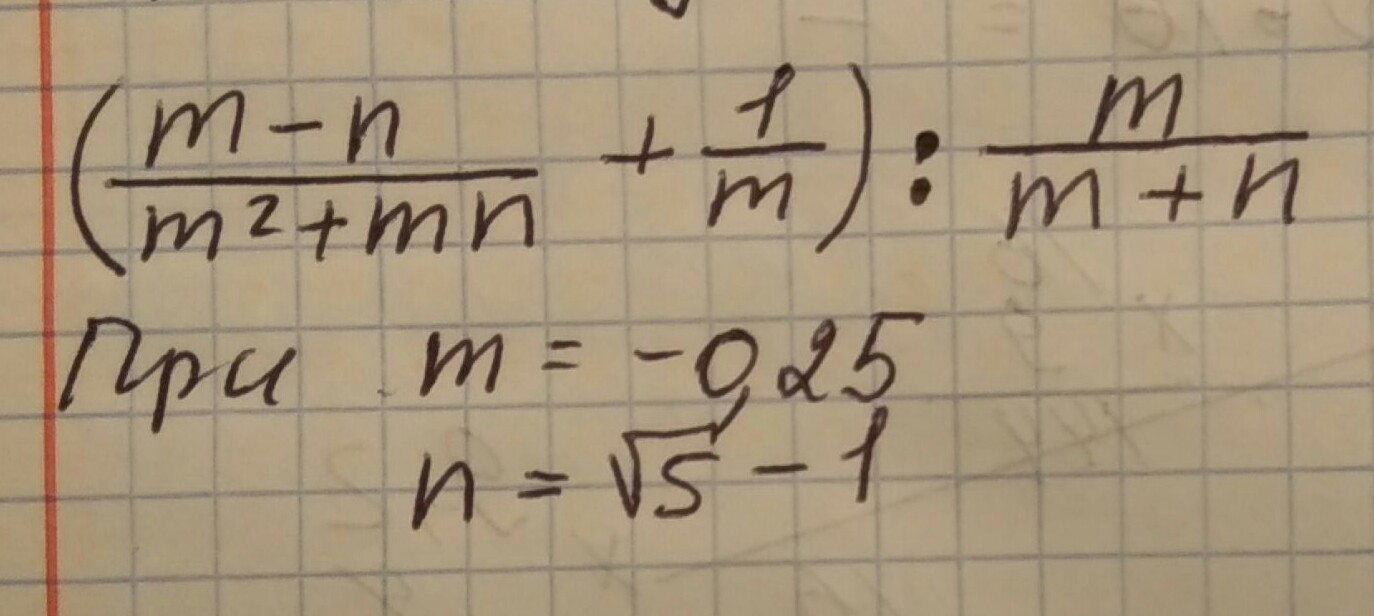 (m-n/m²+mn + 1/m) : m/m+n
При m = -0,25
n = √5 - 1